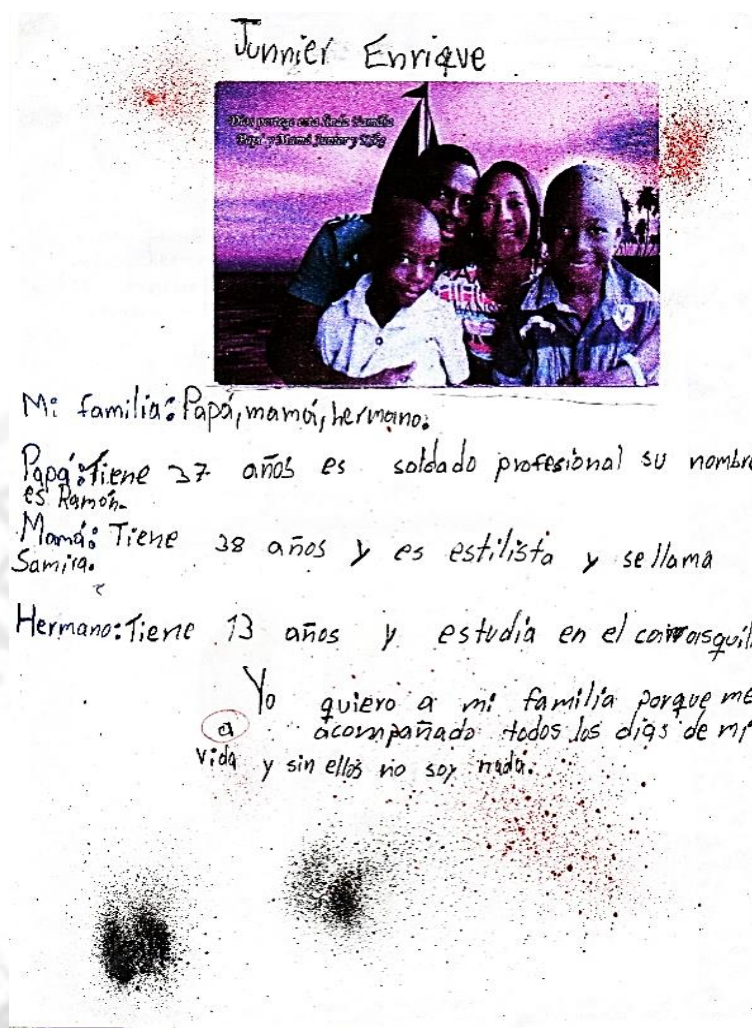 Junnier Enrique
Dios protege esta linda familia
Papi y Mamá Junior y
Mi familia: Papá, mamá, hermano.
Papá: Tiene 37 años es soldado profesional su nombre
es Ramón.
Mamá: Tiene 38 años y es estilista y se llama
Samira.
Hermano: Tiene 13 años y estudia en el
Yo quiero a mi familia porque me
a acompañado todos los dias de mi
vida y sin ellos no soy nada.